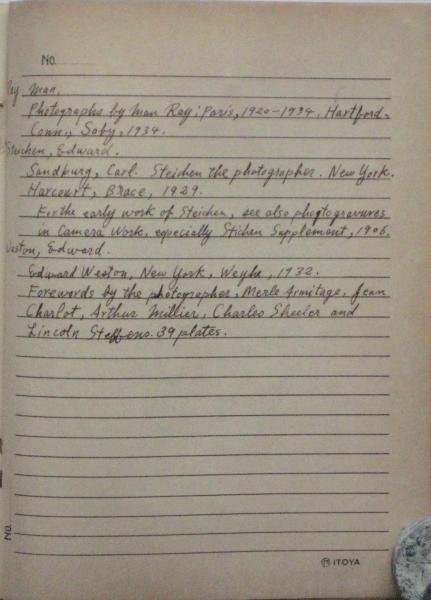 No.
Ray, Man.
Photographs by Man Ray: Paris, 1920-1934. Hartford-
Conn., Soby, 1934.
Steichen, Edward.
Sandburg, Carl. Steichen the photographer. New York.
Harcourt, Brace, 1929.
For the early work of Steichen, see also photogravures
in Camera Work, especially Stichen Supplement, 1906.
Weston, Edward.
Edward Weston, New York, Weyhe, 1932.
Forewords by the photographer, Merle Armitage, Jean
Charlot, Arthur Millier, Charles Sheeler and
Lincoln Steffens. 39 plates.
No.
ITOYA